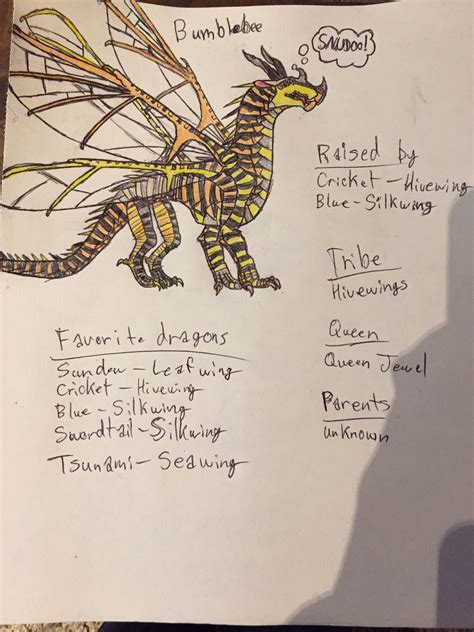 Bumblebee
SNUDOO!
Raised by
Cricket - Hivewing
Blue - Silkwing
Tribe
Hivewings
Queen
Queen Jewel
Parents
unknown
Favorite dragons
Sundew - Leafwing
Cricket - Hivewing
Blue - Silkwing
Swordtail - Silkwing
Tsunami - Seawing